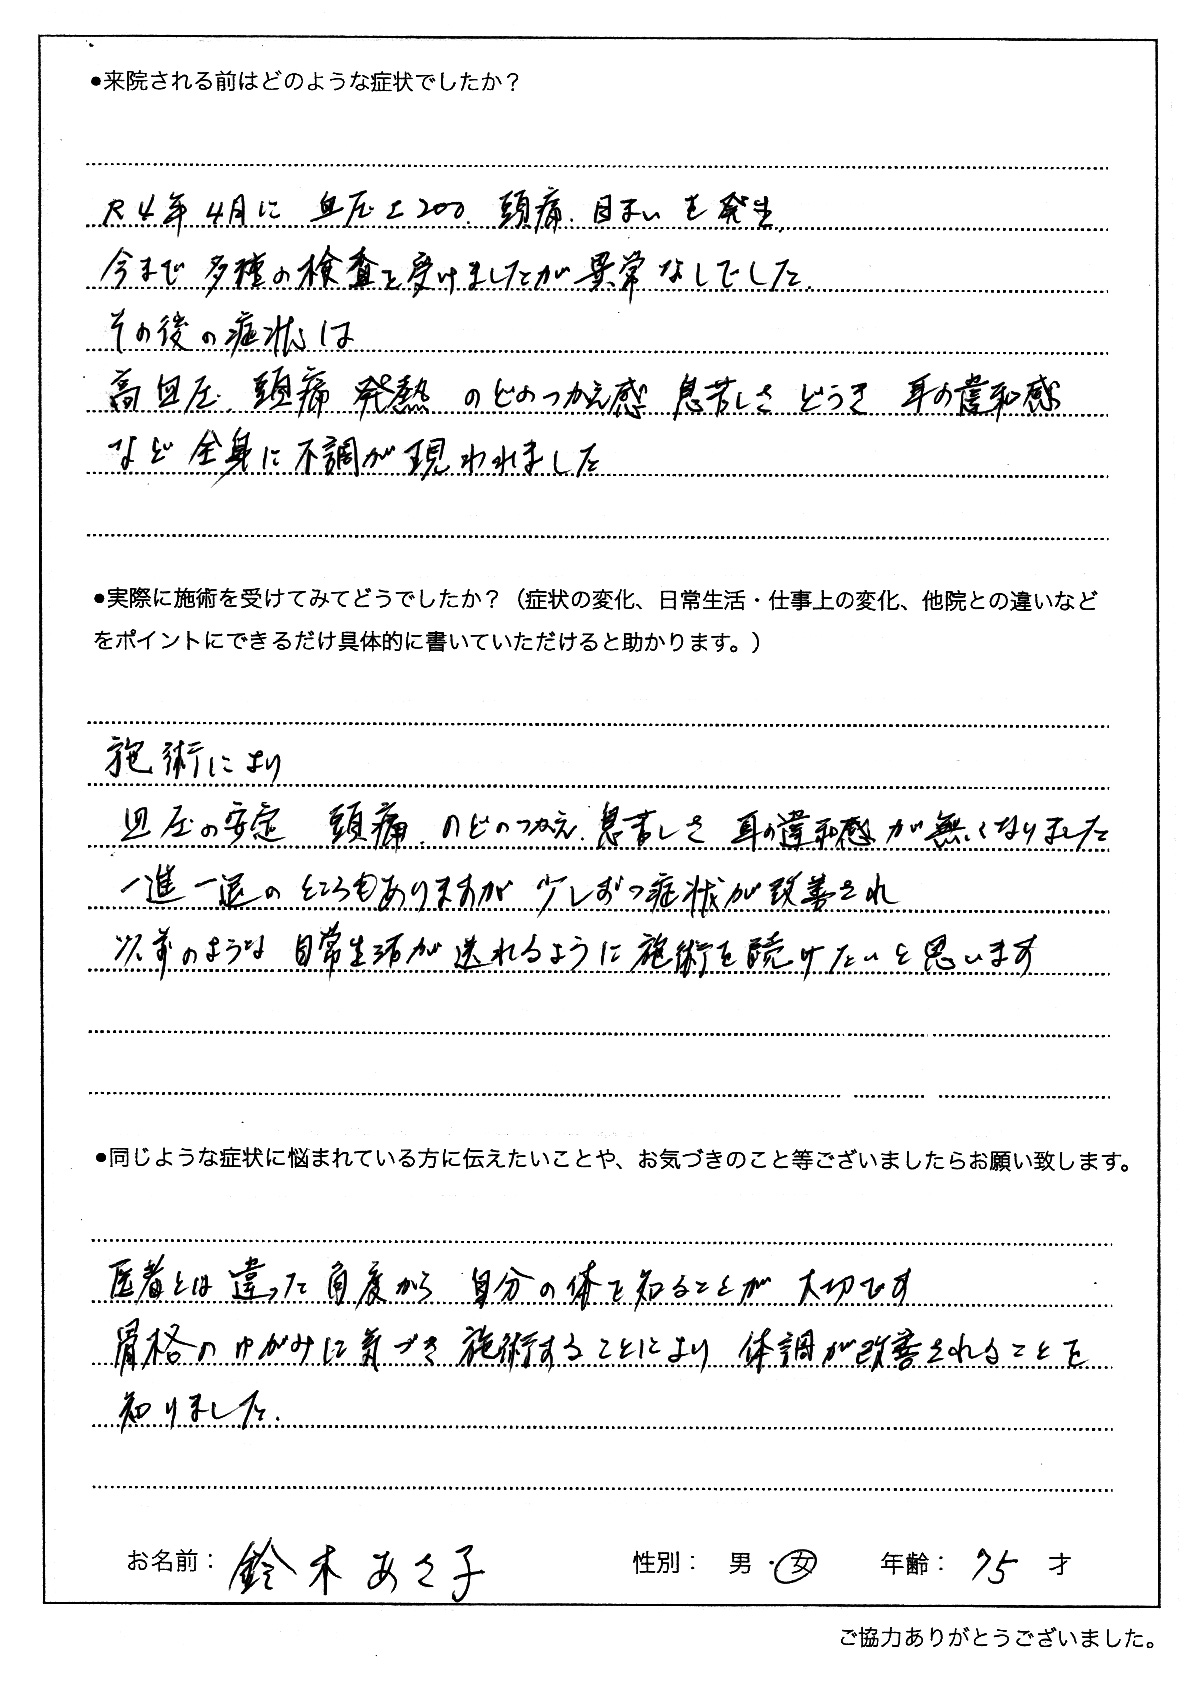 ●来院される前はどのような症状でしたか？
R4年4月に 血圧上200. 頭痛. 目まい を発生.
今まで 多種の検査を受けましたが異常なしでした.
その後の症状は
高血圧. 頭痛 発熱 のどのつかえ感 息苦しさ どうき 耳の違和感
など 全身に不調が現われました
●実際に施術を受けてみてどうでしたか？（症状の変化、日常生活・仕事上の変化、他院との違いなど
をポイントにできるだけ具体的に書いていただけると助かります。）
施術により
血圧の安定 頭痛. のどのつかえ. 息苦しさ 耳の違和感が無くなりました
一進一退のところもありますが 少しずつ症状が改善され
以前のような 日常生活が送れるように施術を続けたいと思います
●同じような症状に悩まれている方に伝えたいことや、お気づきのこと等ございましたらお願い致します。
医者とは違った角度から 自分の体を知ることが 大切です
骨格のゆがみに気づき 施術することにより 体調が改善されることを
知りました.
お名前： 鈴木あさ子 性別： 男・女 年齢： 75 才
ご協力ありがとうございました。